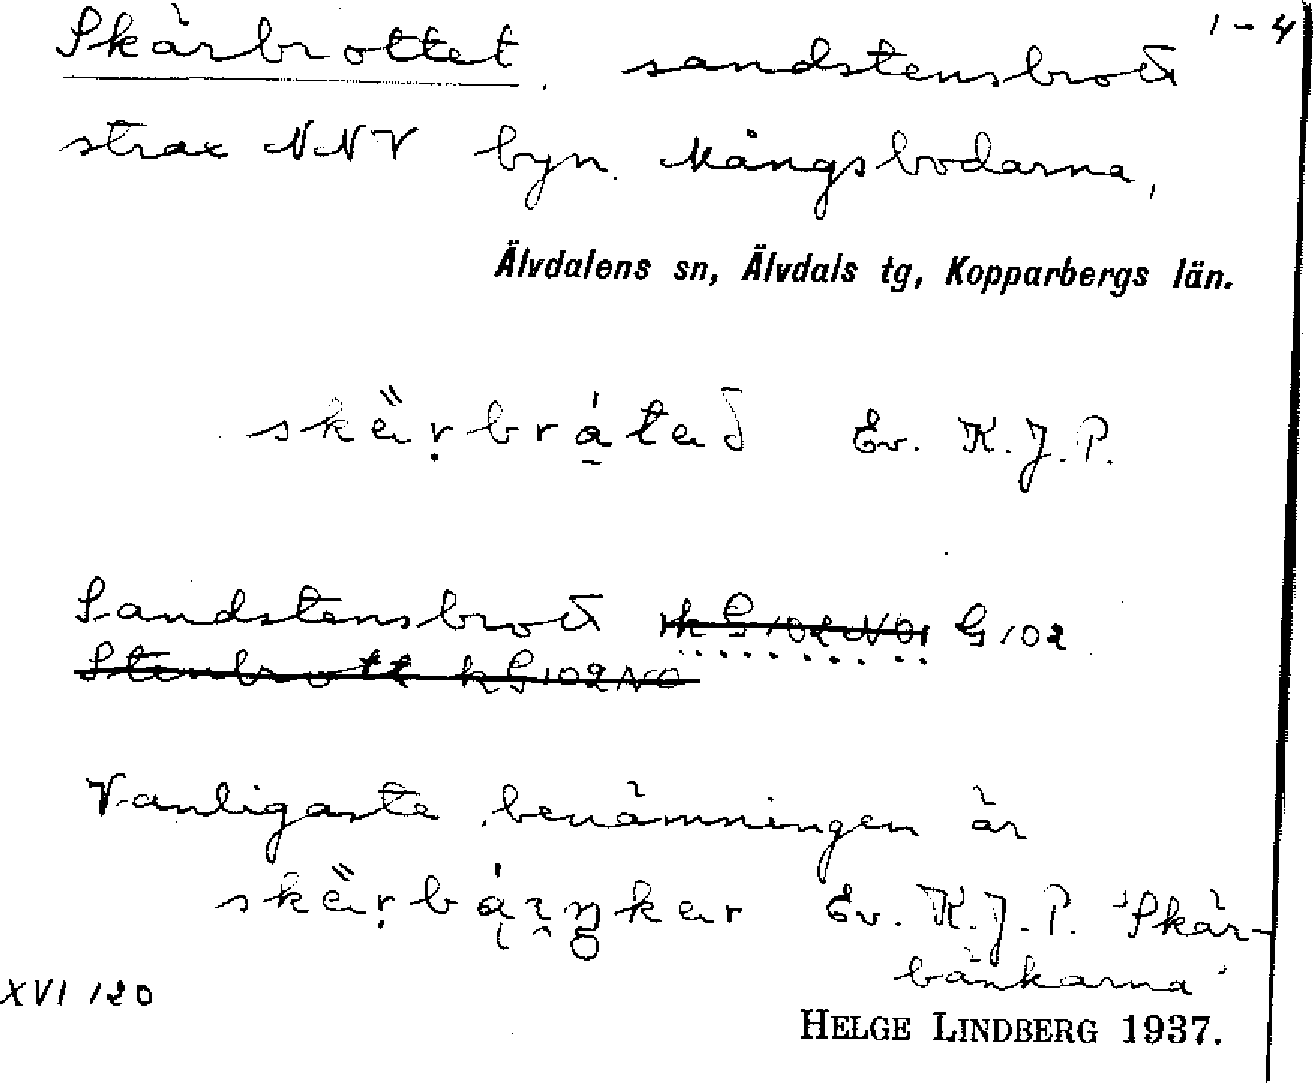 Skärbrottet, sandstensbrott 1-4
strax NNV byn Mångsbodarna,
Älvdalens sn, Älvdals tg, Kopparbergs län.
Ev. K.J.P.
Sandstensbrott k G102 NO, G102
Stenbrott k G102 NO
Vanligaste benämningen är
Ev. K.J.P. 'Skär-
bänkarna'
XVI 120
HELGE LINDBERG 1937.